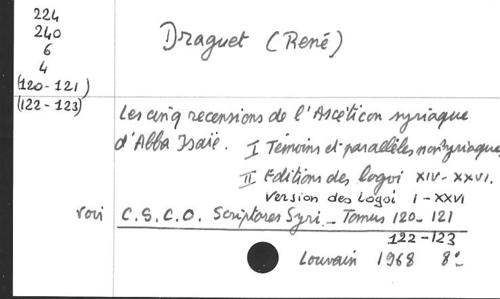 224
240
6
4
(120-121)
(122-123)
Draguet (René)
Les cinq recensions de l'Ascéticon syriaque
d'Abba Isaïe. I Témoins et parallèles non syriaques
II Editions des logoi XIV-XXVI.
Version des Logoi I-XXVI
voir C.S.C.O. Scriptores Syri_ Tomus 120-121
122-123
Louvain 1968 8°